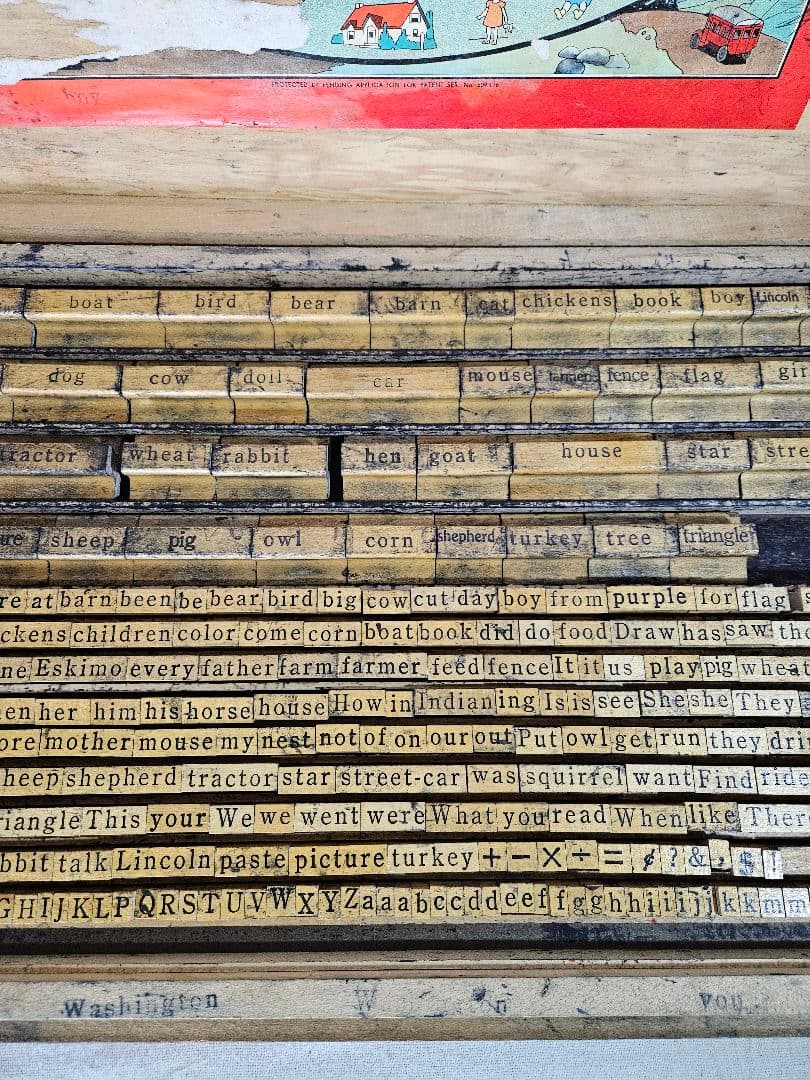 PROTECTED BY PENDING APPLICATION FOR PATENT SER. No.
boat bird bear barn cat chickens book boy Lincoln
dog cow doll car mouse farmer fence flag gir
ractor wheat rabbit hen goat house star stre
re sheep pig owl corn shepherd turkey tree triangle
re at barn been be bear bird big cow cut day boy from purple for flag s
ckens children color come corn boat book did do food Draw has saw the
ne Eskimo every father farm farmer feed fence It it us play pig wheat
en her him his horse house How in Indian ing Is is see She she They
ore mother mouse my nest not of on our out Put owl get run they dri
heep shepherd tractor star street-car was squirrel want Find ride
riangle This your We we went were What you read When like Ther
bbit talk Lincoln paste picture turkey + − × ÷ = ¢ ? & , $ !
GHIJKLPQRSTUVWXYZaaabccddeeffgghhiiijjkkmm
Washington W n you